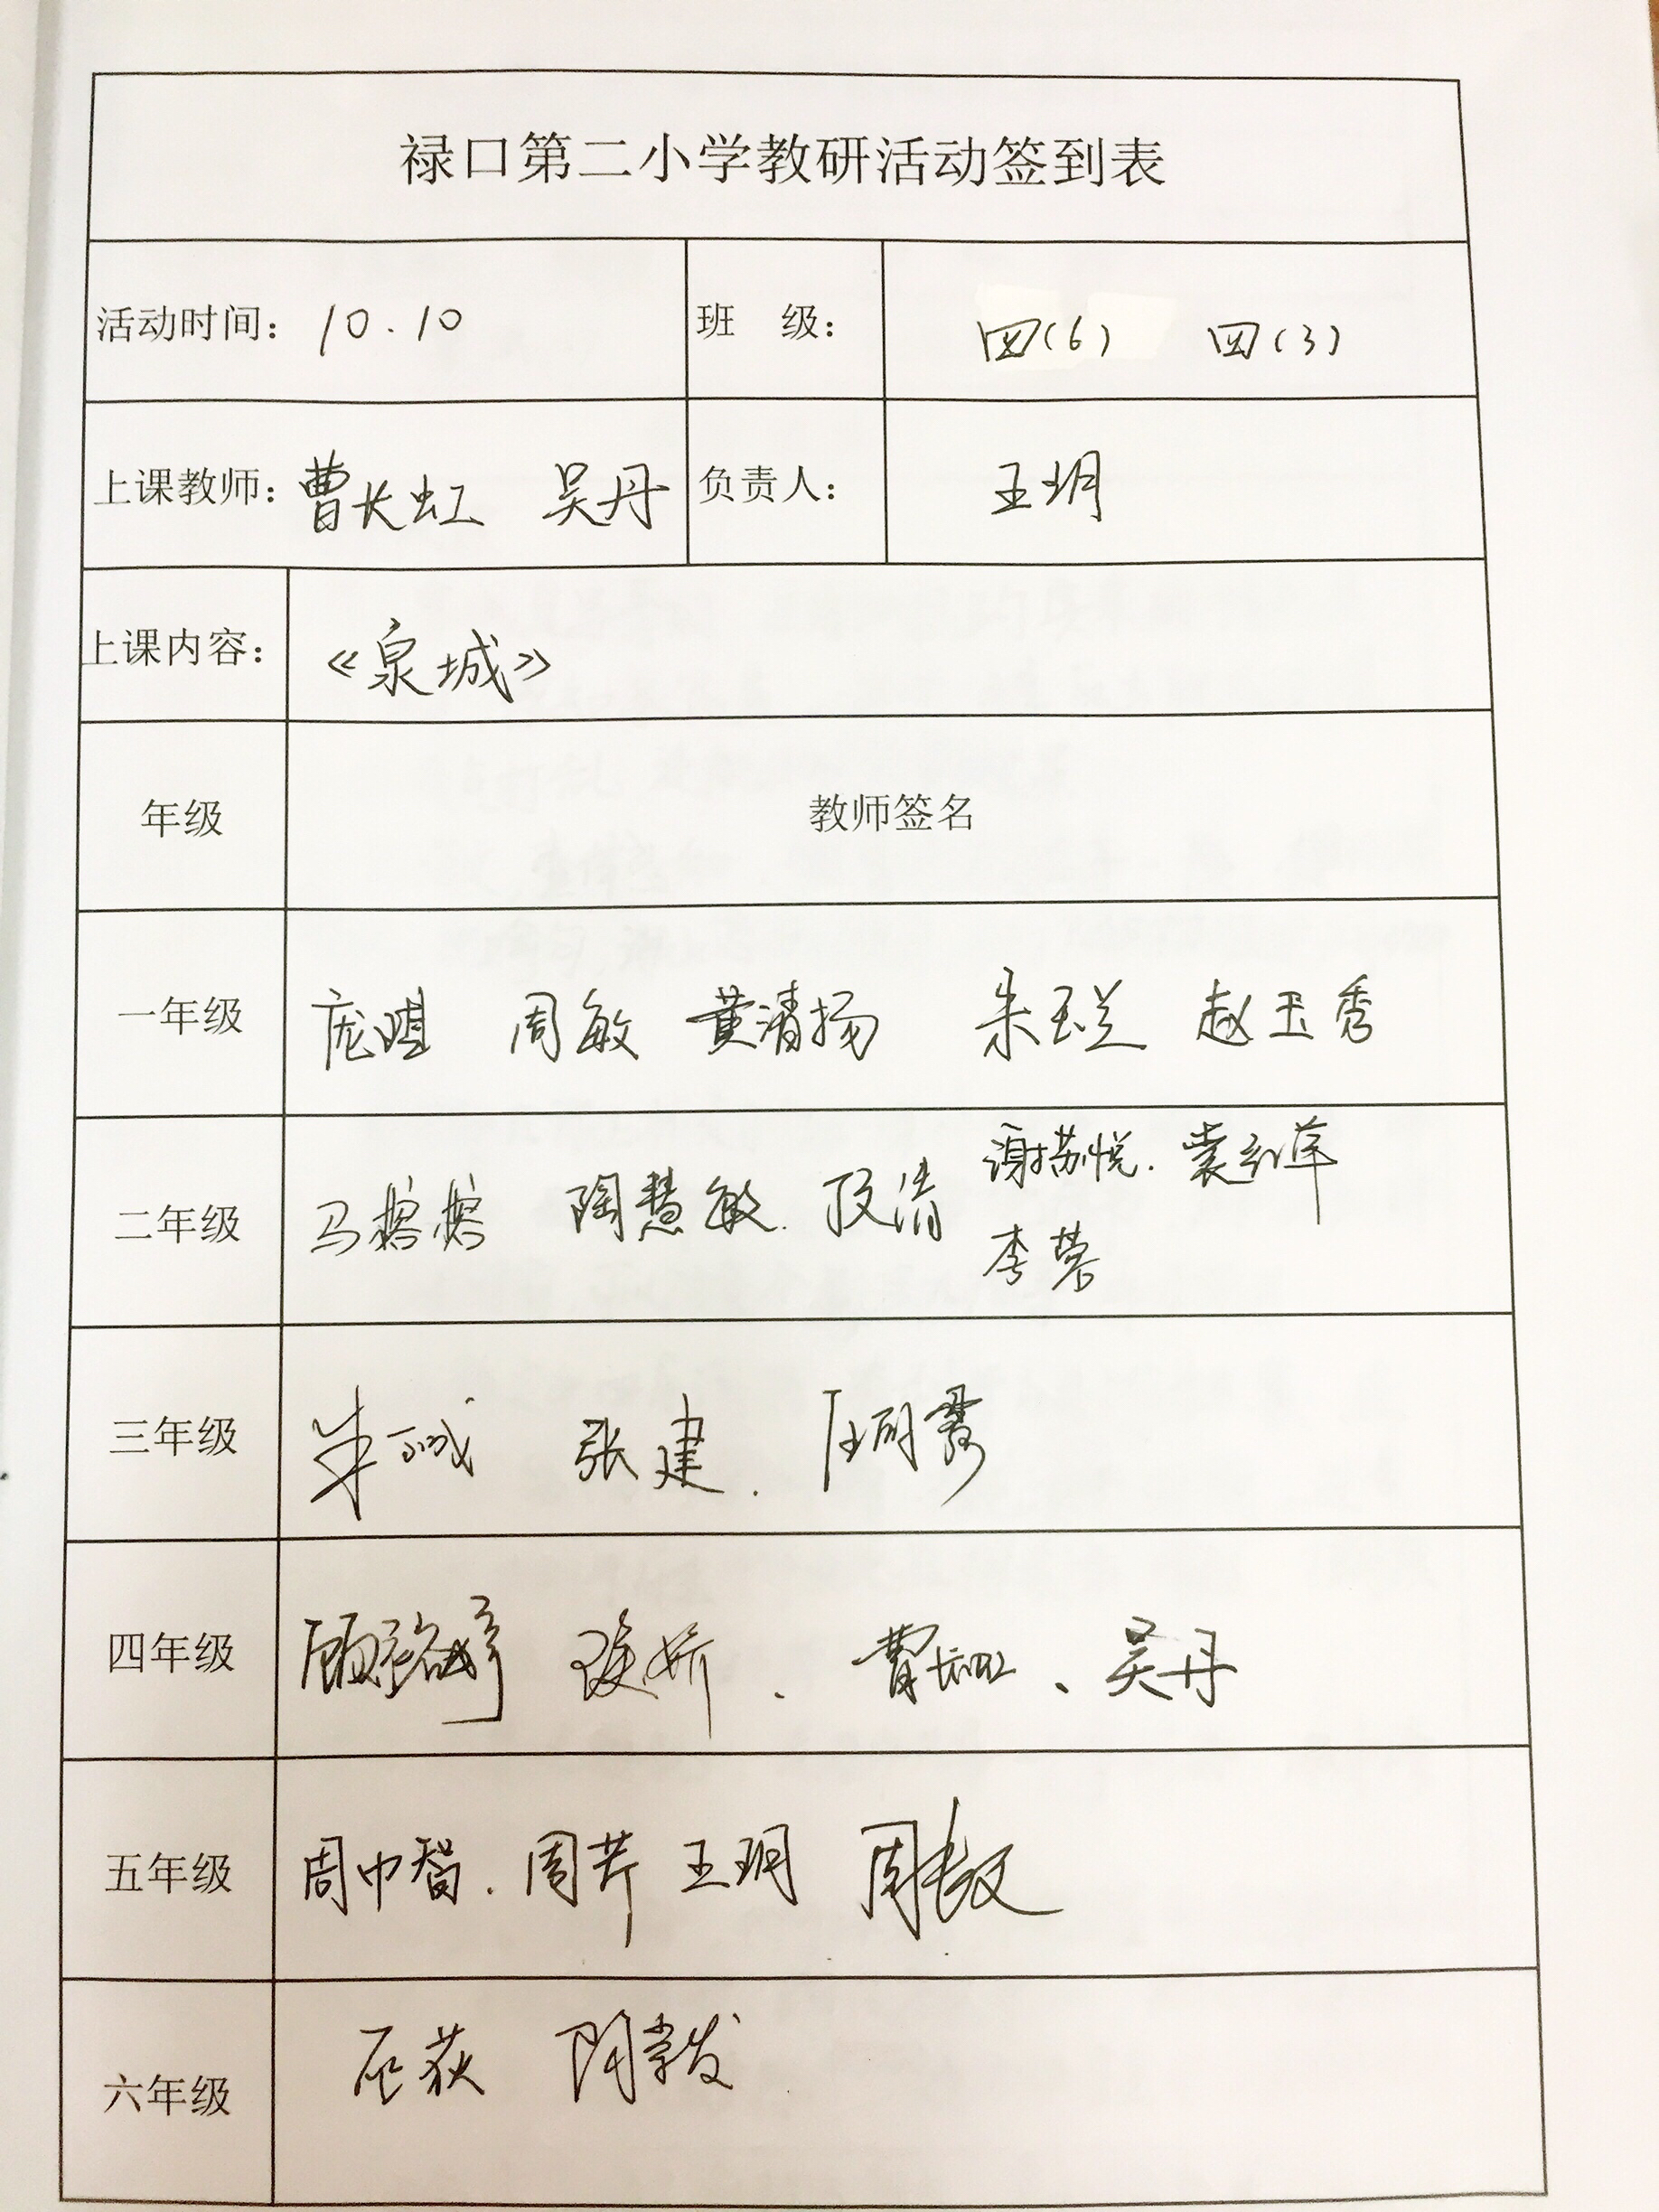 禄口第二小学教研活动签到表
活动时间：10.10 班 级： 四(6) 四(3)
上课教师：曹长虹 吴丹 负责人： 王玥
上课内容：《泉城》
年级 教师签名
一年级 周敏 黄清扬 朱玉兰 赵玉秀
谢苏悦. 袁红萍
二年级 马榕榕 陶慧敏. 段清
李蓉
三年级 张建.
四年级 曹长虹、吴丹
五年级 周巾智. 周芹 王玥
六年级